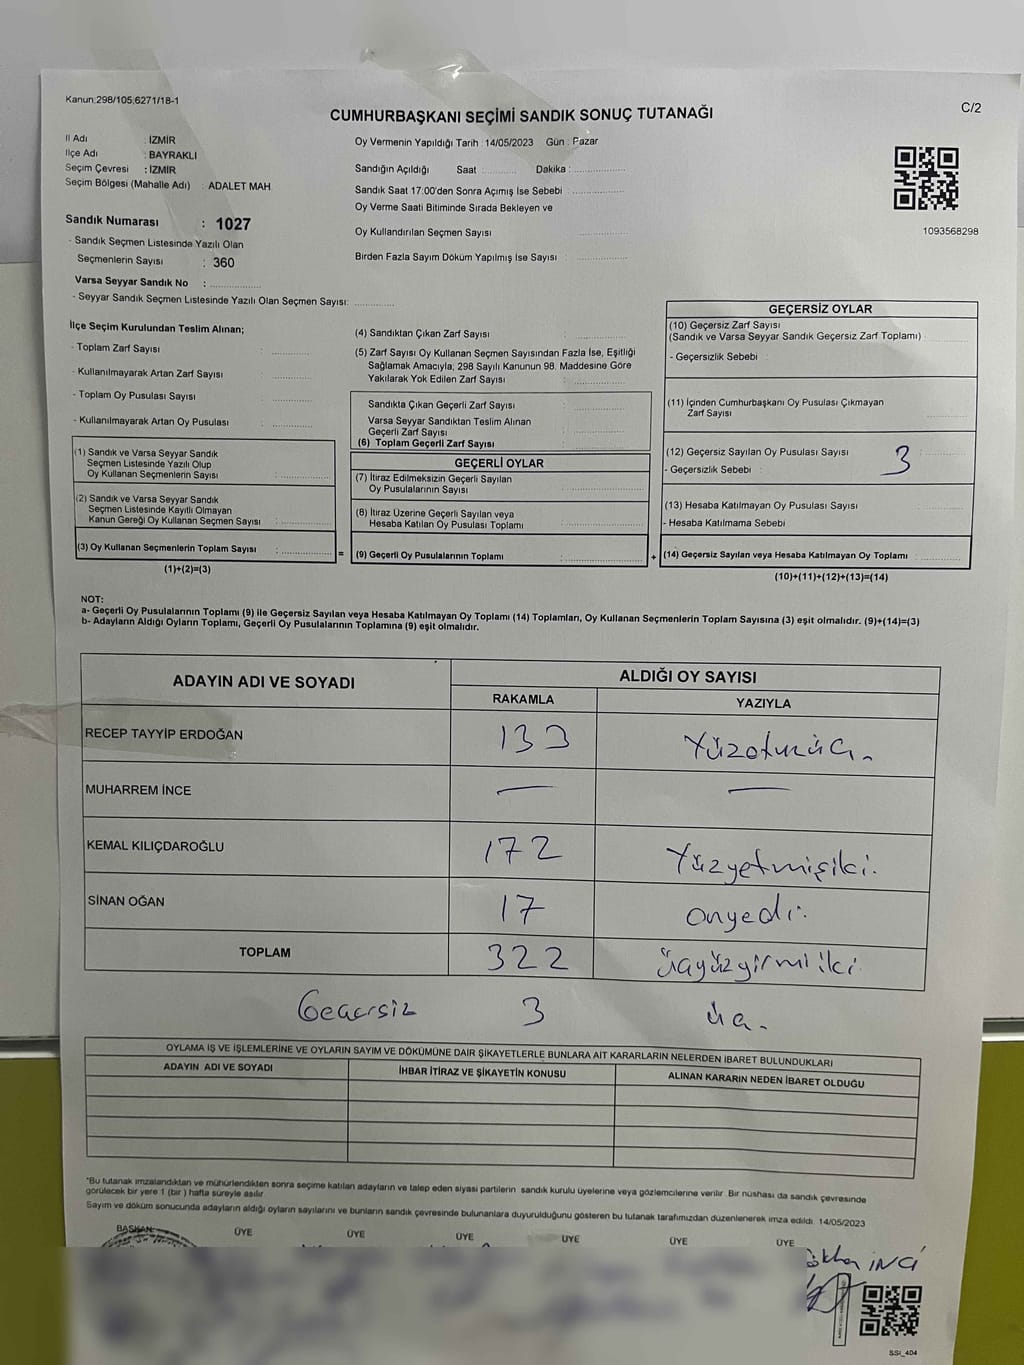 Kanun:298/105,6271/18-1
C/2
CUMHURBAŞKANI SEÇİMİ SANDIK SONUÇ TUTANAĞI
İl Adı : İZMİR
İlçe Adı : BAYRAKLI
Seçim Çevresi : İZMİR
Seçim Bölgesi (Mahalle Adı) : ADALET MAH.
Sandık Numarası : 1027
- Sandık Seçmen Listesinde Yazılı Olan
Seçmenlerin Sayısı : 360
Varsa Seyyar Sandık No :
- Seyyar Sandık Seçmen Listesinde Yazılı Olan Seçmen Sayısı:
Oy Vermenin Yapıldığı Tarih : 14/05/2023 Gün : Pazar
Sandığın Açıldığı Saat Dakika :
Sandık Saat 17:00'den Sonra Açımış İse Sebebi
Oy Verme Saati Bitiminde Sırada Bekleyen ve
Oy Kullandırılan Seçmen Sayısı
Birden Fazla Sayım Döküm Yapılmış İse Sayısı :
1093568298
İlçe Seçim Kurulundan Teslim Alınan;
- Toplam Zarf Sayısı :
- Kullanılmayarak Artan Zarf Sayısı :
- Toplam Oy Pusulası Sayısı :
- Kullanılmayarak Artan Oy Pusulası :
(1) Sandık ve Varsa Seyyar Sandık
Seçmen Listesinde Yazılı Olup
Oy Kullanan Seçmenlerin Sayısı :
(2) Sandık ve Varsa Seyyar Sandık
Seçmen Listesinde Kayıtlı Olmayan
Kanun Gereği Oy Kullanan Seçmen Sayısı :
(3) Oy Kullanan Seçmenlerin Toplam Sayısı :
(1)+(2)=(3)
=
(4) Sandıktan Çıkan Zarf Sayısı :
(5) Zarf Sayısı Oy Kullanan Seçmen Sayısından Fazla İse, Eşitliği
Sağlamak Amacıyla; 298 Sayılı Kanunun 98. Maddesine Göre
Yakılarak Yok Edilen Zarf Sayısı :
Sandıkta Çıkan Geçerli Zarf Sayısı :
Varsa Seyyar Sandıktan Teslim Alınan
Geçerli Zarf Sayısı :
(6) Toplam Geçerli Zarf Sayısı :
GEÇERLİ OYLAR
(7) İtiraz Edilmeksizin Geçerli Sayılan
Oy Pusulalarının Sayısı :
(8) İtiraz Üzerine Geçerli Sayılan veya
Hesaba Katılan Oy Pusulası Toplamı :
(9) Geçerli Oy Pusulalarının Toplamı :
+
GEÇERSİZ OYLAR
(10) Geçersiz Zarf Sayısı
(Sandık ve Varsa Seyyar Sandık Geçersiz Zarf Toplamı) :
- Geçersizlik Sebebi :
(11) İçinden Cumhurbaşkanı Oy Pusulası Çıkmayan
Zarf Sayısı
(12) Geçersiz Sayılan Oy Pusulası Sayısı : 3
- Geçersizlik Sebebi :
(13) Hesaba Katılmayan Oy Pusulası Sayısı
- Hesaba Katılmama Sebebi
(14) Geçersiz Sayılan veya Hesaba Katılmayan Oy Toplamı :
(10)+(11)+(12)+(13)=(14)
NOT:
a- Geçerli Oy Pusulalarının Toplamı (9) ile Geçersiz Sayılan veya Hesaba Katılmayan Oy Toplamı (14) Toplamları, Oy Kullanan Seçmenlerin Toplam Sayısına (3) eşit olmalıdır. (9)+(14)=(3)
b- Adayların Aldığı Oyların Toplamı, Geçerli Oy Pusulalarının Toplamına (9) eşit olmalıdır.
ADAYIN ADI VE SOYADI ALDIĞI OY SAYISI
RAKAMLA YAZIYLA
RECEP TAYYİP ERDOĞAN 133 Yüzotuzüç.
MUHARREM İNCE — —
KEMAL KILIÇDAROĞLU 172 Yüzyetmişiki.
SİNAN OĞAN 17 onyedi.
TOPLAM 322 üçyüzyirmiiki
Geçersiz 3 üç.
OYLAMA İŞ VE İŞLEMLERİNE VE OYLARIN SAYIM VE DÖKÜMÜNE DAİR ŞİKAYETLERLE BUNLARA AİT KARARLARIN NELERDEN İBARET BULUNDUKLARI
ADAYIN ADI VE SOYADI İHBAR İTİRAZ VE ŞİKAYETİN KONUSU ALINAN KARARIN NEDEN İBARET OLDUĞU
*Bu tutanak imzalandıktan ve mühürlendikten sonra seçime katılan adayların ve talep eden siyasi partilerin sandık kurulu üyelerine veya gözlemcilerine verilir. Bir nüshası da sandık çevresinde
görülecek bir yere 1 (bir ) hafta süreyle asılır.
Sayım ve döküm sonucunda adayların aldığı oyların sayılarını ve bunların sandık çevresinde bulunanlara duyurulduğunu gösteren bu tutanak tarafımızdan düzenlenerek imza edildi. 14/05/2023
BAŞKAN ÜYE ÜYE ÜYE ÜYE ÜYE ÜYE
İNCİ
SSİ_404